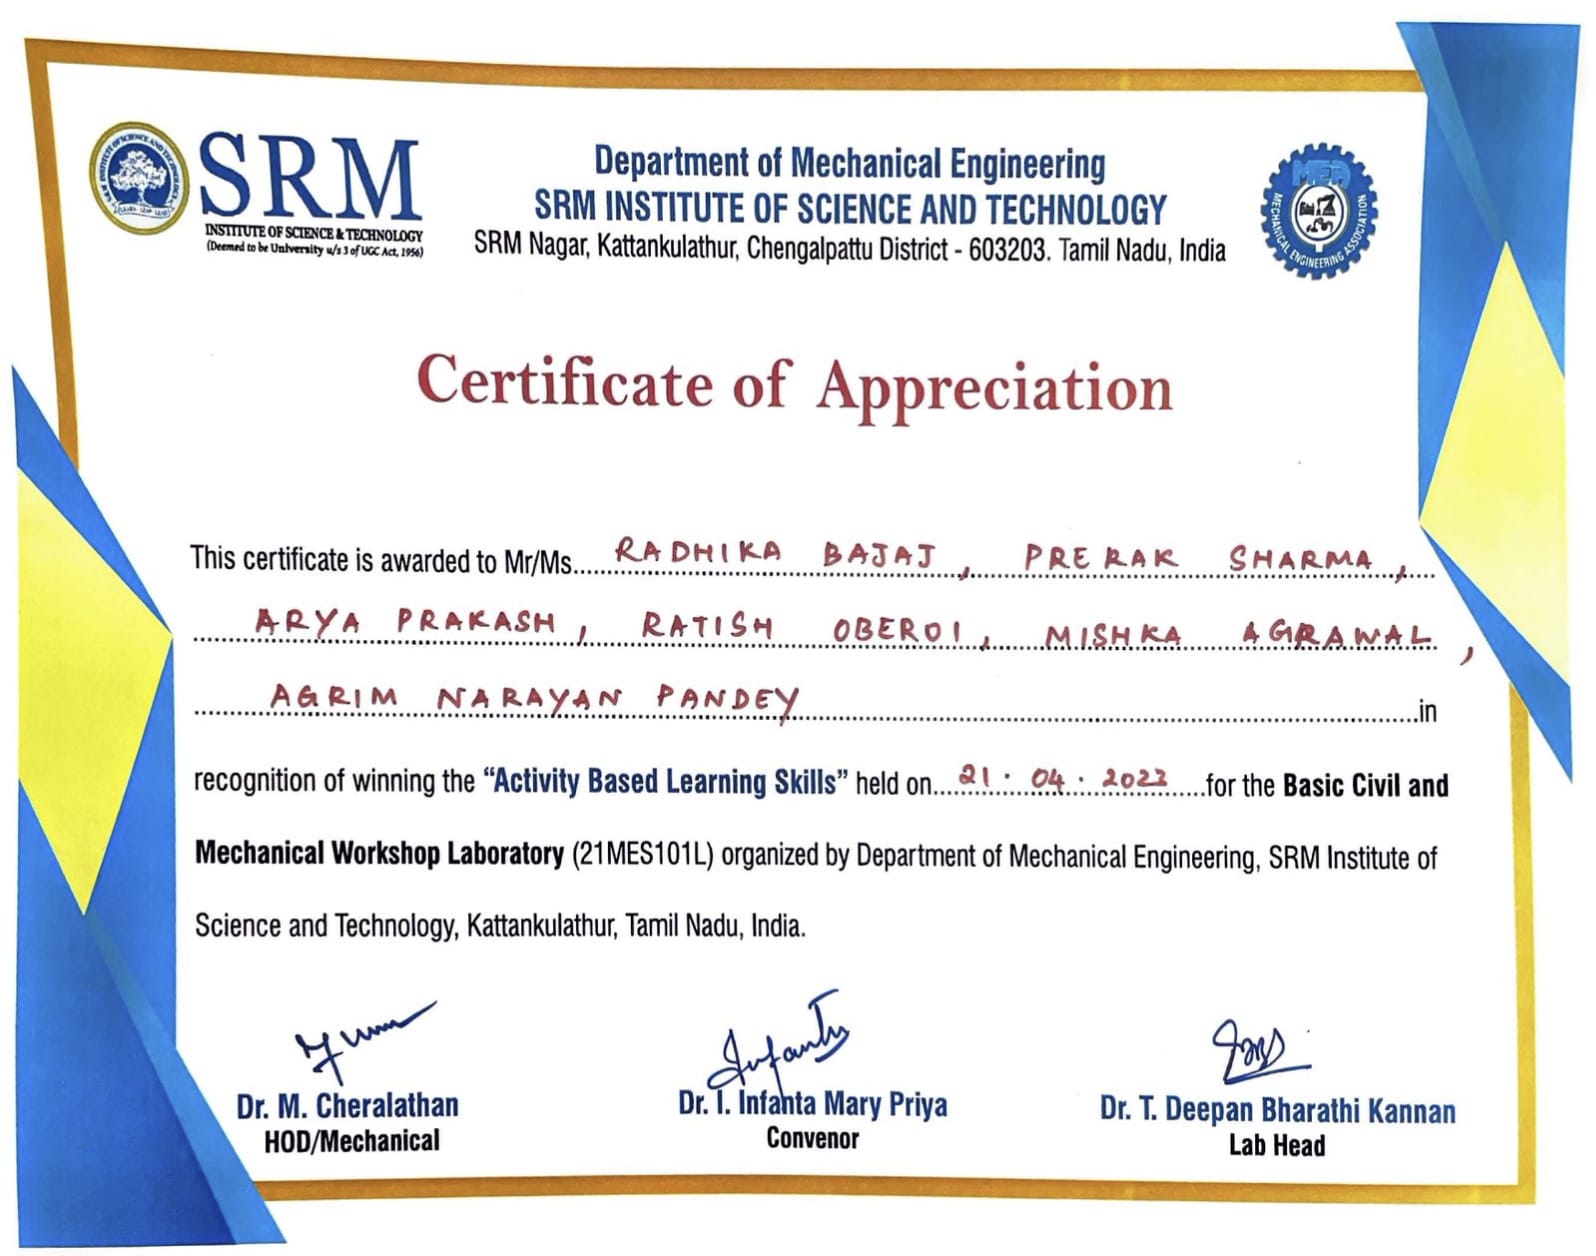 SRM
INSTITUTE OF SCIENCE & TECHNOLOGY
(Deemed to be University u/s 3 of UGC Act, 1956)
Department of Mechanical Engineering
SRM INSTITUTE OF SCIENCE AND TECHNOLOGY
SRM Nagar, Kattankulathur, Chengalpattu District - 603203. Tamil Nadu, India
MEA
MECHANICAL ENGINEERING ASSOCIATION
Certificate of Appreciation
This certificate is awarded to Mr/Ms.... RADHIKA BAJAJ, PRERAK SHARMA,
ARYA PRAKASH, RATISH OBEROI, MISHKA AGRAWAL,
AGRIM NARAYAN PANDEY ....in
recognition of winning the “Activity Based Learning Skills” held on....21.04.2023....for the Basic Civil and
Mechanical Workshop Laboratory (21MES101L) organized by Department of Mechanical Engineering, SRM Institute of
Science and Technology, Kattankulathur, Tamil Nadu, India.
Infanta
Dr. M. Cheralathan
HOD/Mechanical
Dr. I. Infanta Mary Priya
Convenor
Dr. T. Deepan Bharathi Kannan
Lab Head